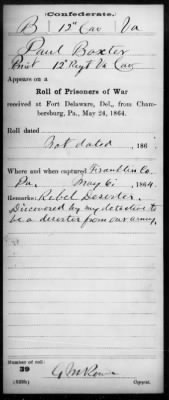 Confederate.
B 12" Cav Va
Paul Baxter
Priv 12" Regt Va Cav
Appears on a
Roll of Prisoners of War
received at Fort Delaware, Del., from Cham-
bersburg, Pa., May 24, 1864.
Roll dated
Not dated, 186 .
Where and when captured Franklin Co.
Pa. May 6, 1864.
Remarks: Rebel Deserter.
Discovered by my detective to
be a deserter from our army.
Number of roll:
39
Copyist.